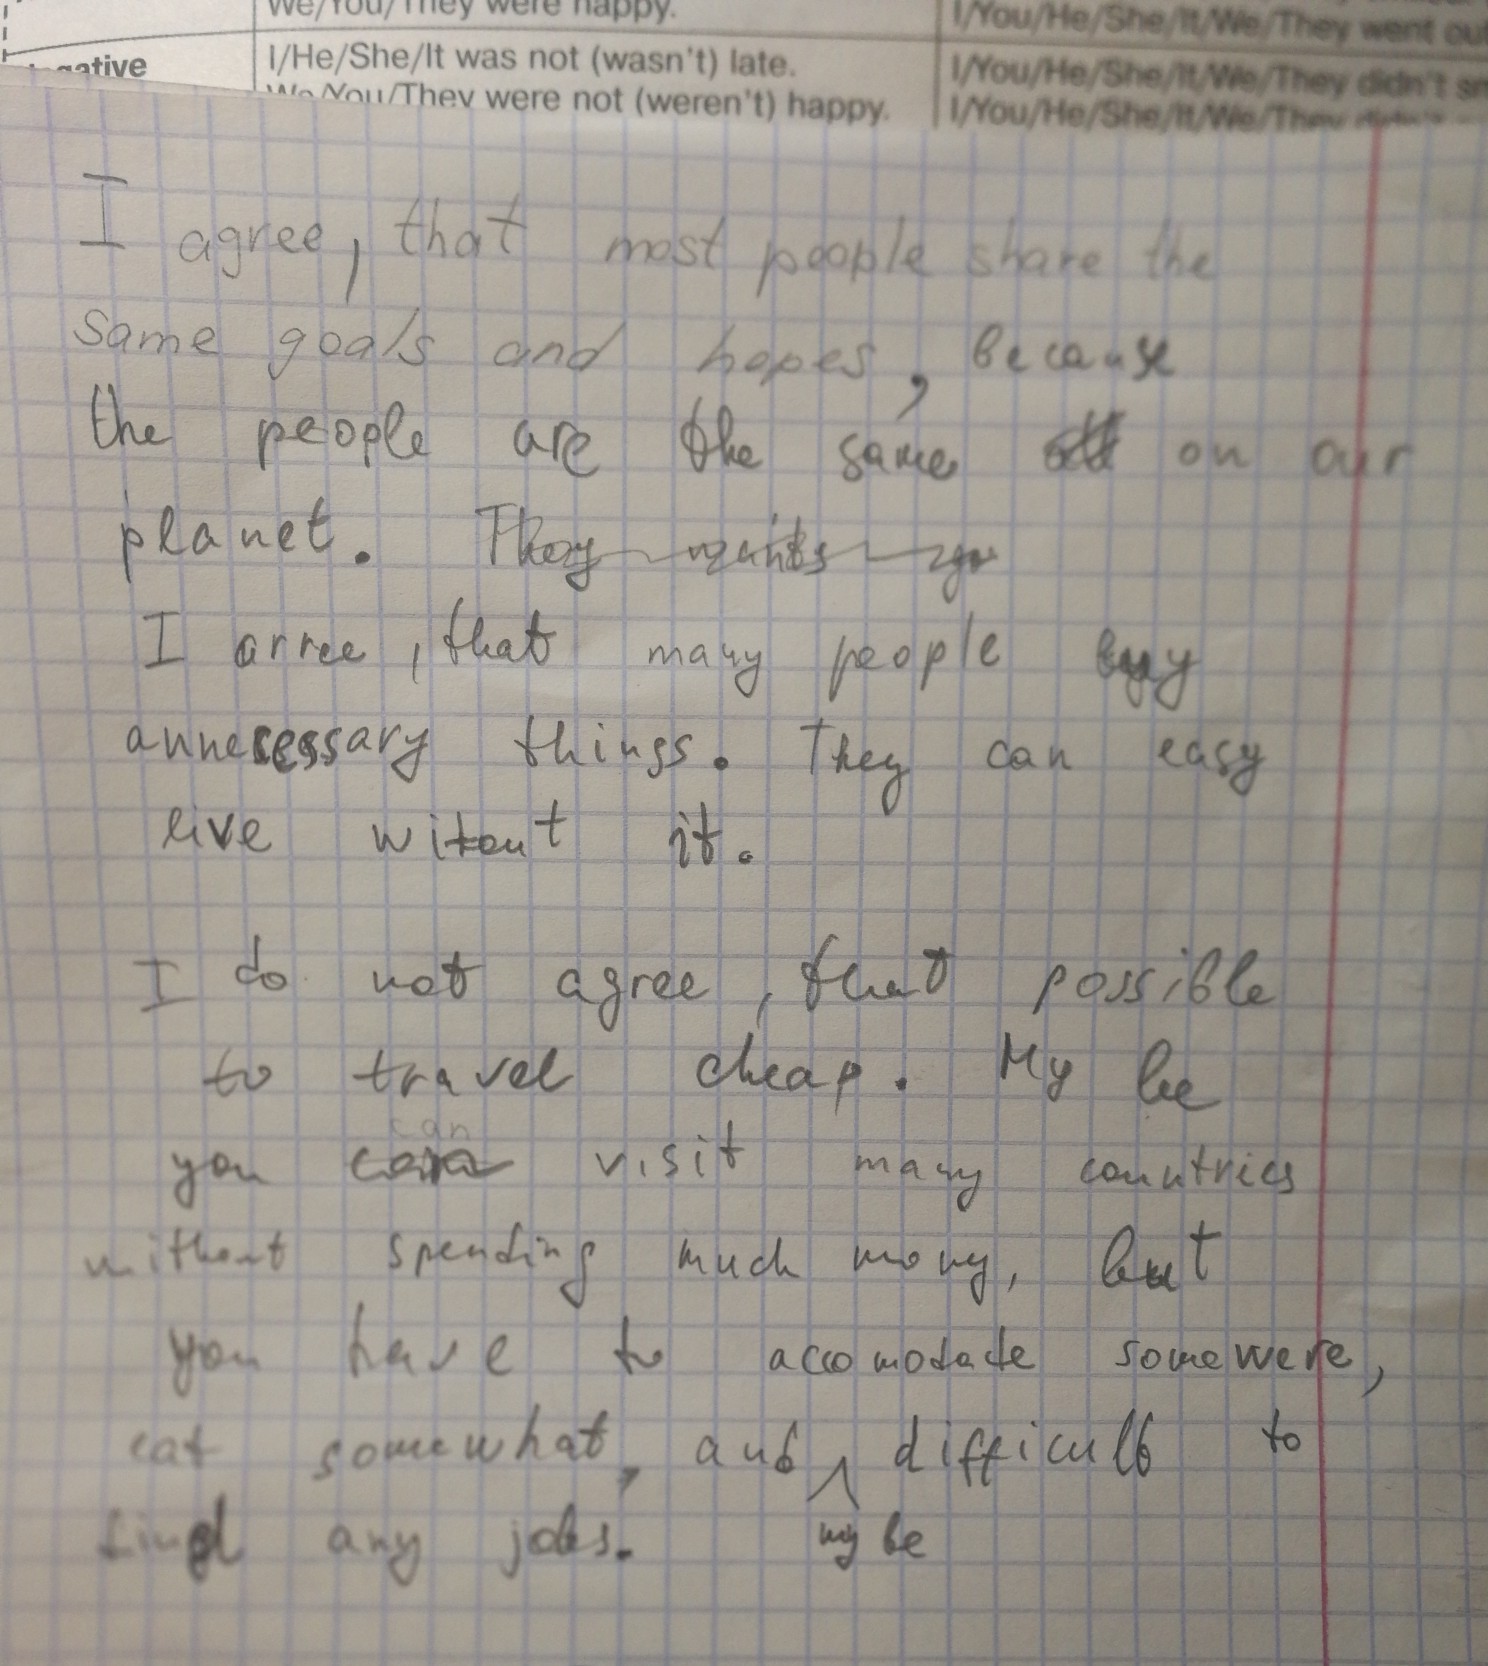 We/You/They were happy.
I/You/He/She/It/We/They went out
I/He/She/It was not (wasn't) late.
We/You/They were not (weren't) happy.
I/You/He/She/It/We/They didn't
I/You/He/She/It/We/They didn't
I agree, that most people share the
same goals and hopes, because
the people are the same on our
planet. They wants go
I arree, that many people buy
annecessary things. They can easy
live witout it.
I do not agree, that possible
to travel cheap. My be
can
you visit many countries
without spending much mony, but
you have to accomodate somewere,
eat somewhat, and difficult to
find any jobs. my be